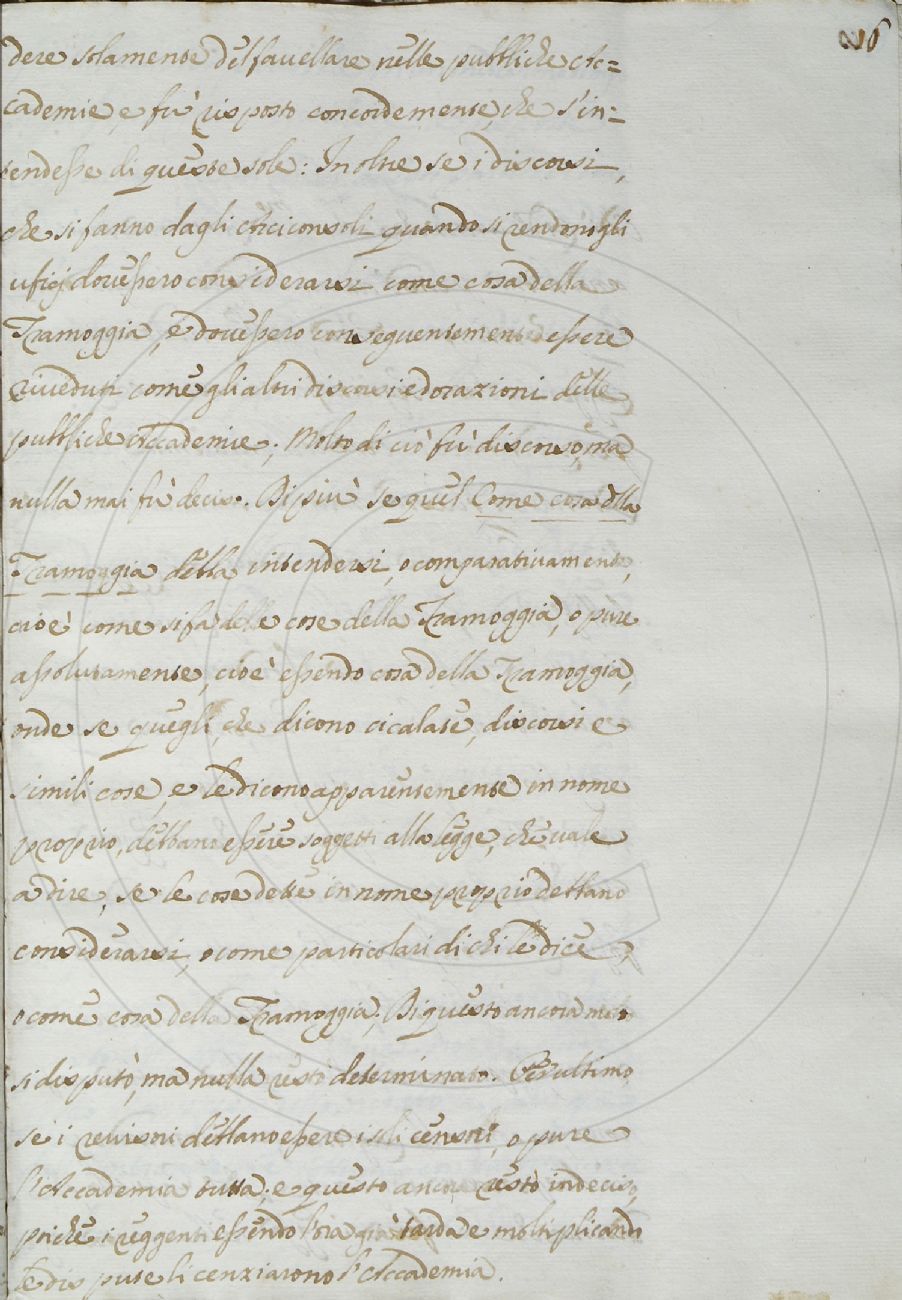 216
dere solamente del favellare nelle pubbliche Ac=
cademie, e fù risposto concordemente, che s'in=
tendesse di queste sole: Inoltre se i discorsi,
che si fanno dagli Arciconsoli quando si rendono gli
ufizj dovessero considerarsi come cosa della
Tramoggia, e dovessero conseguentemente essere
riveduti come gli altri discorsi ed orazioni delle
pubbliche Accademie; Molto di ciò fù discorso, ma
nulla mai fù deciso. Di più se quel Come cosa della
Tramoggia debba intendersi, o comparativamente,
cioè come si fa delle cose della Tramoggia, o pure
assolutamente, cioè essendo cosa della Tramoggia,
onde se quegli, che dicono cicalate, discorsi e
simili cose, e le dicono apparentemente in nome
proprio, debbano essere soggetti alla legge, che vale
a dire, se le cose dette in nome proprio debbano
considerarsi, o come particolari di chi le dice,
o come cosa della Tramoggia; Di questo ancora molto
si disputò, ma nulla restò determinato. Per ultimo
se i revisori debbano essere i soli censori, o pure
l'Accademia tutta; e questo ancora restò indeciso,
poiché i reggenti essendo l'ora già tarda e moltiplicando
le dispute licenziarono l'Accademia.